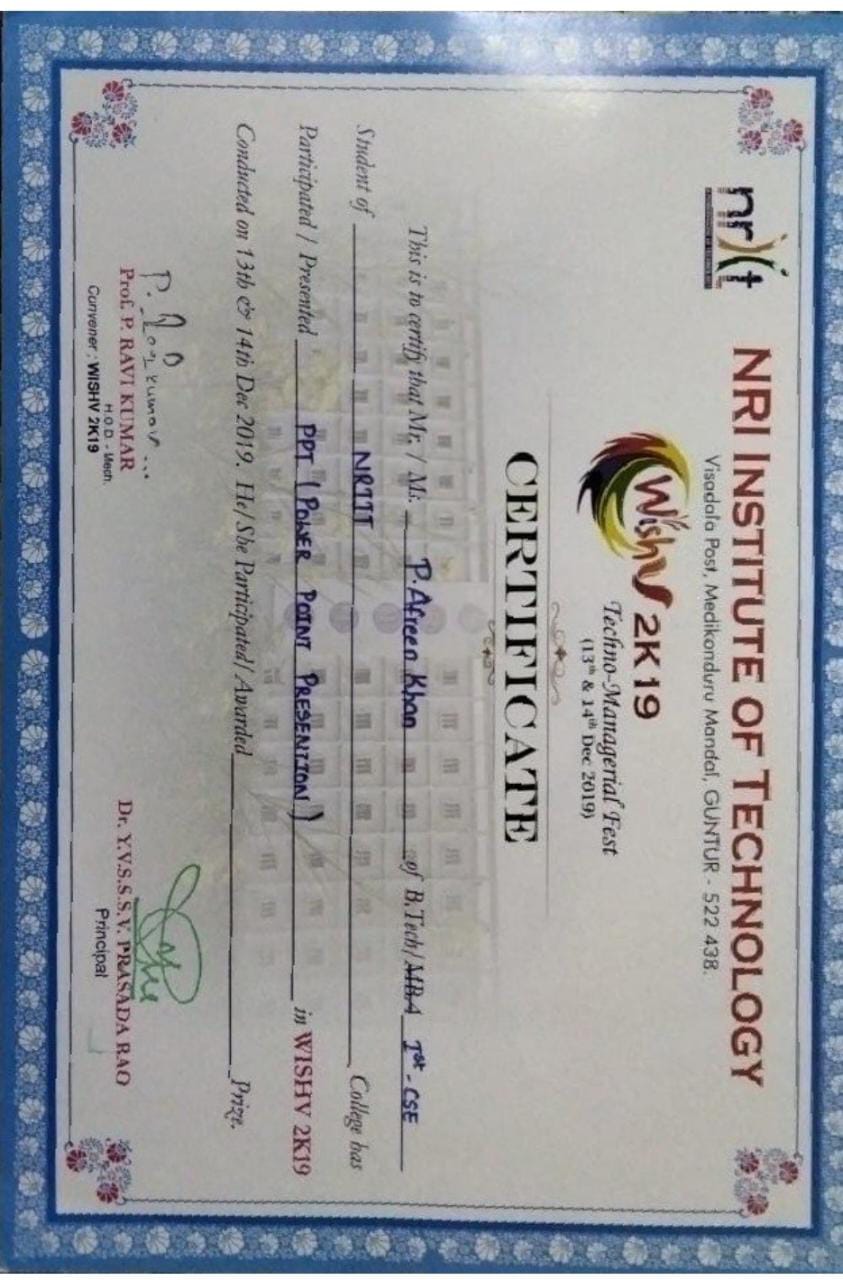 nriit
A POWERHOUSE OF TECHNOLOGY
NRI INSTITUTE OF TECHNOLOGY
Visadala Post, Medikonduru Mandal, GUNTUR - 522 438.
WishV 2K19
Techno-Managerial Fest
(13th & 14th Dec 2019)
CERTIFICATE
This is to certify that Mr. / Ms. P. Afreen Khan of B.Tech/MBA Ist - CSE
Student of NRIIT College has
Participated / Presented PPT (POWER POINT PRESENTION) in WISHV 2K19
Conducted on 13th & 14th Dec 2019. He/She Participated/Awarded Prize.
P. Ravi Kumar
Prof. P. RAVI KUMAR
H.O.D. - Mech.
Convener : WISHV 2K19
Dr. Y.V.S.S.S.V. PRASADA RAO
Principal